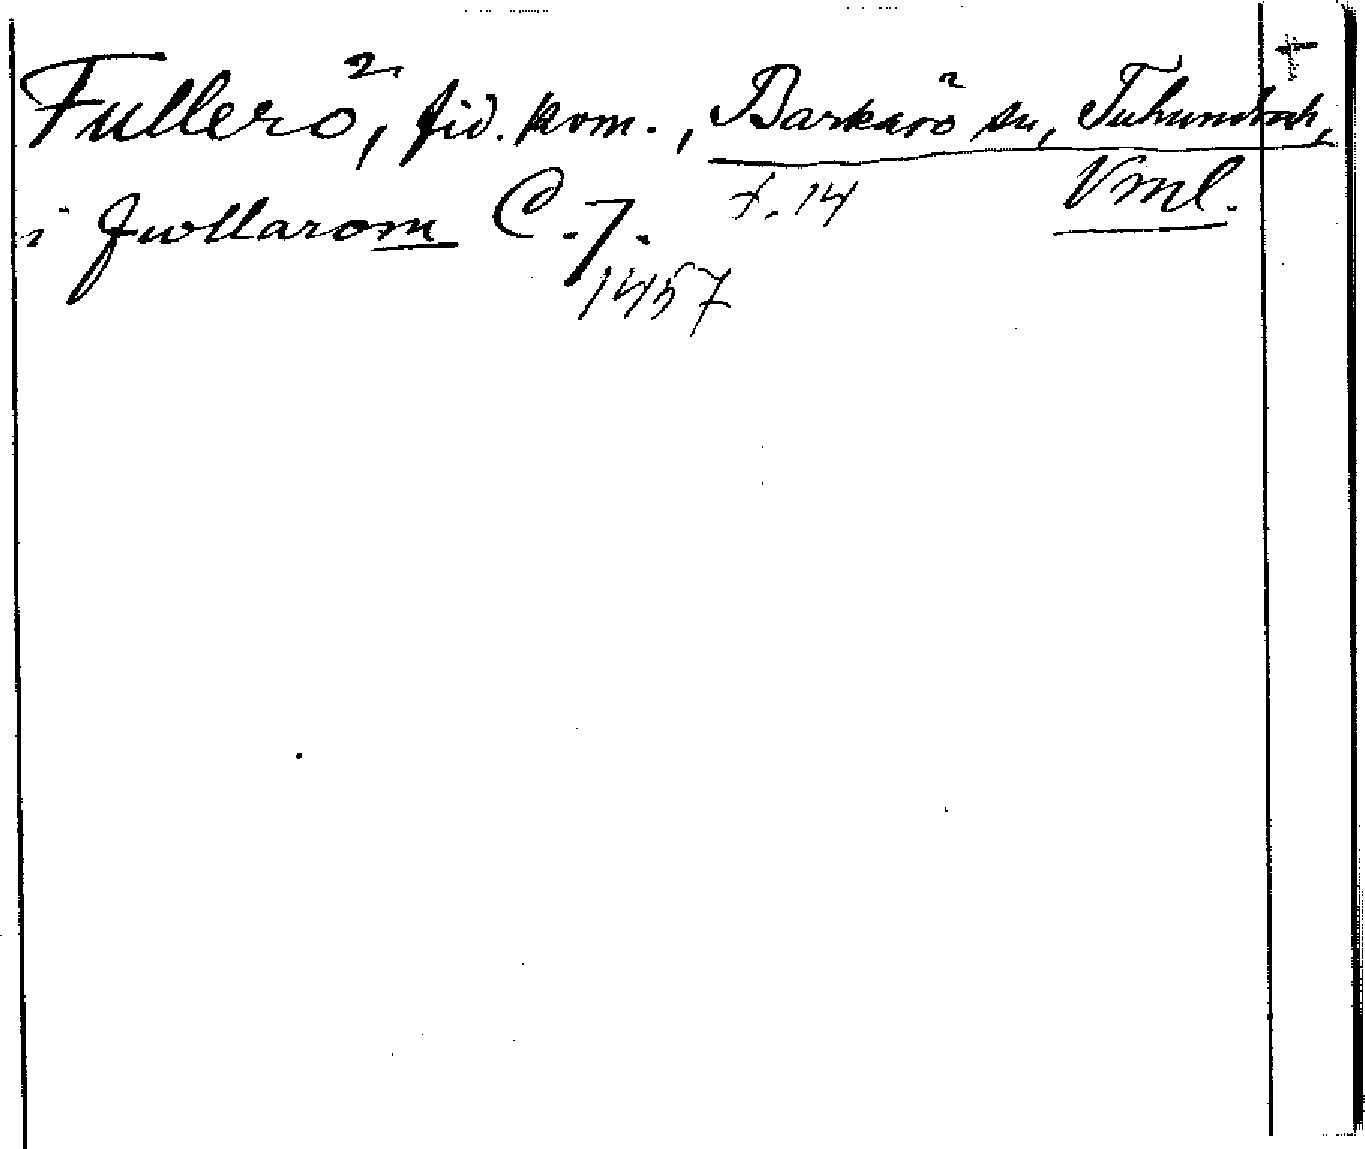 Fullerö, fid. kom., Barkarö sn, Tuhundra h, +
i ffwllarom C. 7. f. 14 Vml.
1457